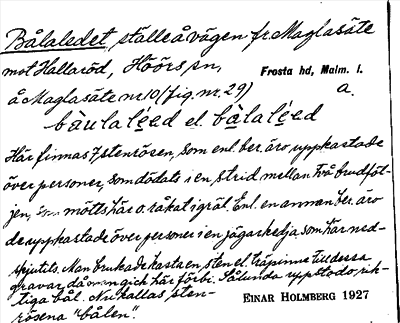 Bålaledet, ställe å vägen fr. Maglasäte
mot Hallaröd, Höörs sn,
Frosta hd, Malm. l.
å Maglasäte nr 10 (fig. nr. 29)
a.
bàulaléed el. bàlaléed
Här finnas 7 stenrösen, som enl. ber. äro uppkastade
över personer, som dödats i en strid mellan två brudföl-
jen, som mötts här o. råkat i gräl. Enl. en annan ber. äro
de uppkastade över personer i en jägarkedja som här ned-
skjutits. Man brukade kasta en sten el. träpinne till dessa
gravar, då man gick här förbi. Sålunda uppstodo rik-
tiga bål. Nu kallas sten-
rösena "bålen".
EINAR HOLMBERG 1927